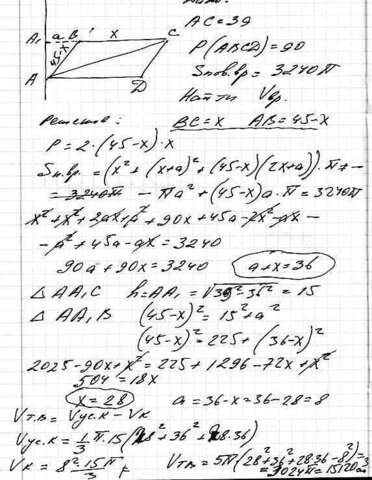 A₁ a B x C
45-x
A D
AC = 39
P(ABCD) = 90
Sп.вр = 3240π
Найти Vвр.
Решение: BC = x AB = 45-x
P = 2·(45-x)·x
Sп.вр. = (x² + (x+a)² + (45-x)(2x+a))·π +-
= 3240π - πa² + (45-x)a·π = 3240π
+ 90x + 45a -
+ 45a - ax = 3240
90a + 90x = 3240 a+x = 36
△ AA₁C h = AA₁ = √39² - 36² = 15
△ AA₁B (45-x)² = 15² + a²
(45-x)² = 225 + (36-x)²
2025 - 90x + x² = 225 + 1296 - 72x + x²
504 = 18x
x = 28 a = 36-x = 36-28 = 8
Vт.в. = Vус.к - Vк
Vус.к = 1/3 π·15 (28² + 36² + 28·36)
Vк = 8²·15π/3 Vт.в. = 5π(28² + 36² + 28·36 - 8²) =
= 3024π = 15120π